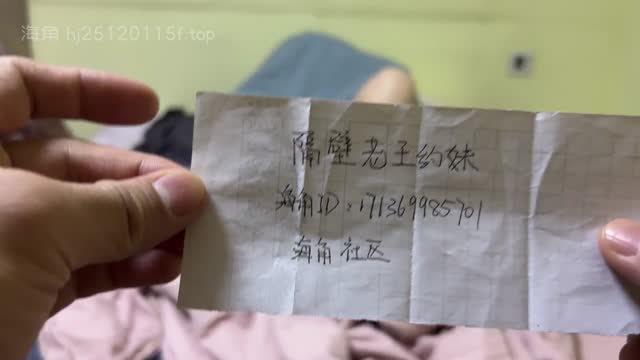 海角 hj25120115f.top
隔壁老王约妹
海角ID：171369985701
海角社区